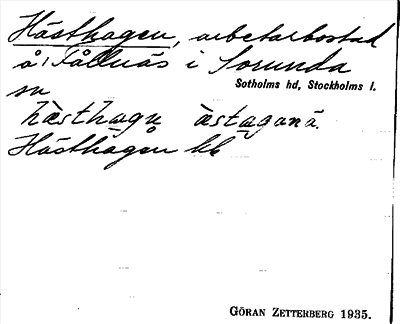 Hästhagen, arbetarbostad
å Fållnäs i Sorunda
Sotholms hd, Stockholms l.
sn
hästhagu ästaganä.
Hästhagen kk
GÖRAN ZETTERBERG 1935.